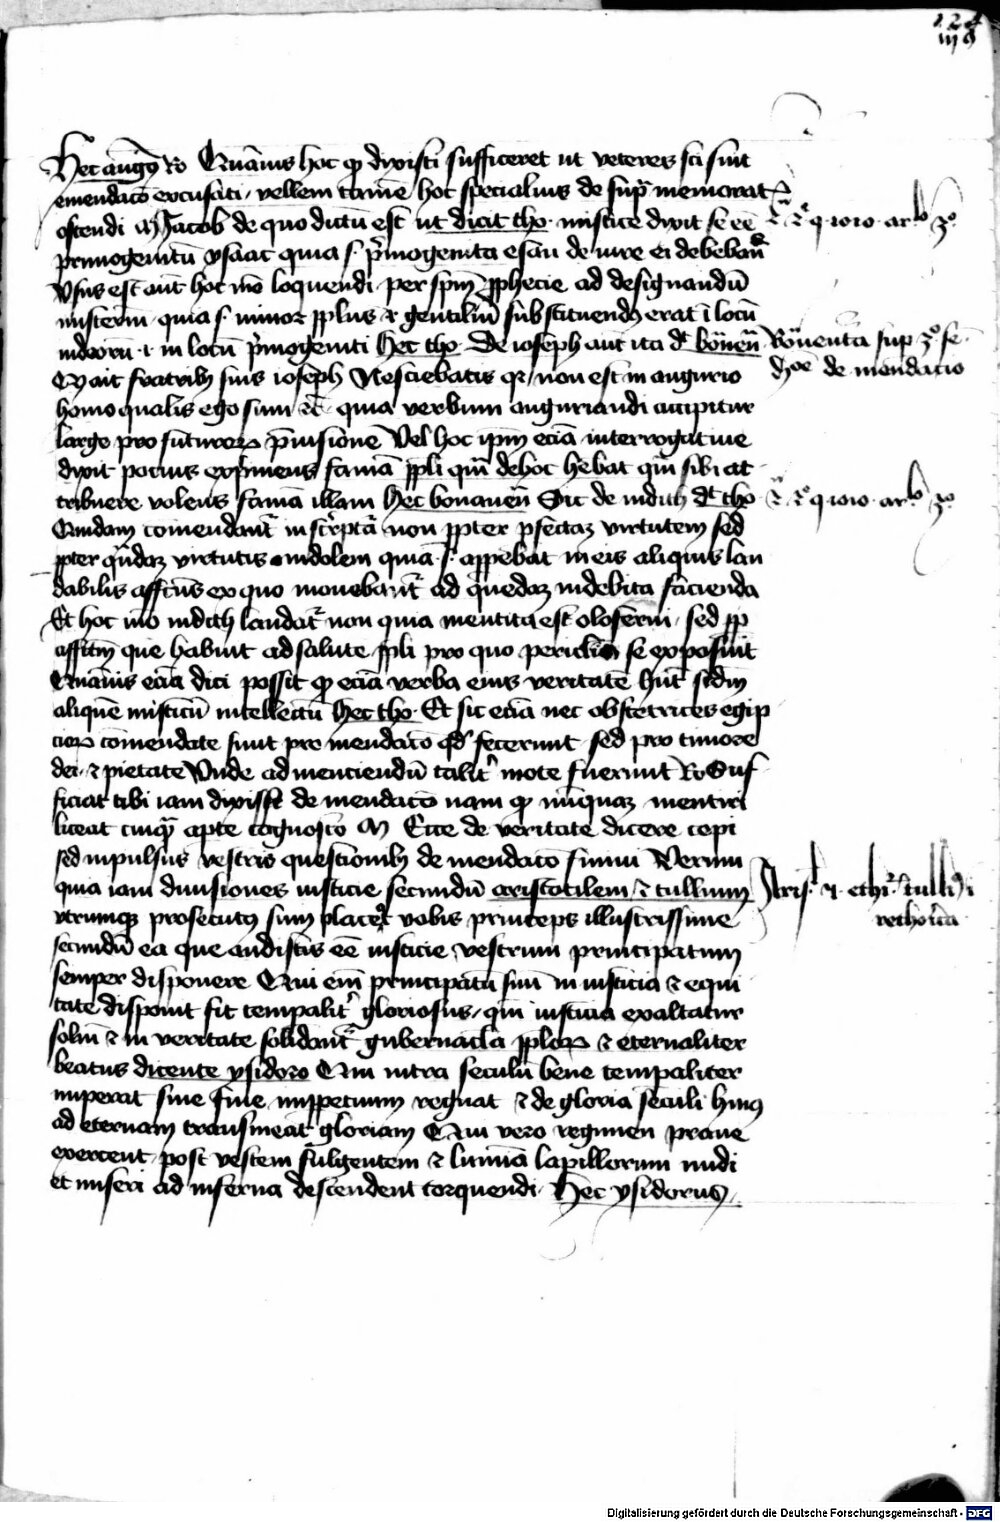 124
Hec aug9 Ro Quãuis hoc qd dixisti sufficeret ut veteres sci sint
emendacõ excusati, vellem tamẽ hoc specialius de sup̃ memorat
ostendi M Jacob de quo dictũ est ut dicit tho. mistice dixit se eẽ
primogenitũ ysaac quia s. p̃mogenita esau de iure ei debebañ
Usus est aũt hoc mõ loquendi per spm̃ ꝓphecie ad designandũ
misteriũ quia s. minor pplus ⁊ gentiliũ substituendus erat ĩ locũ
iudeorũ ⁊ in locũ p̃mogeniti Hec tho. De ioseph aũt ita dt bõueñ
Cũ ait fratrib suis ioseph Nesciebatis qz non est in augurio
homo qualis ego sum ⁊c̃ quia verbum auguriandi accipitur
large pro futuroꝝ p̃uisionẽ Vel hoc ipm̃ eciã interrogatiue
dixit potius exp̃mens famã ppli qui de hoc hẽbat quã sibi at
tribuere volens famã illam Hec bonaueñ Sic de iudith dt tho
Quidam comendant̃ in sc̃riptã non ꝓpter ꝑfectaʒ virtutem sed
ꝓpter quãdaʒ virtutis indolem quia s. appebat in eis aliquis lau
dabilis affectus ex quo mouebant̃ ad quedaʒ indebita facienda
Et hoc mõ iudith laudat̃ non quia mentita est oloferni, sed ꝓp
affctm̃ quẽ habuit ad salutẽ ppli pro quo periclis se exposuit
Quãuis eciã dici possit qd eciã verba eius veritatẽ hñt scdm̃
aliquẽ misticũ intellectũ Hec tho. Et sic eciã nec obstetrices egip
cioꝝ comendate sunt pro mendacõ qd fecerunt sed pro timore
dei, ⁊ pietate Unde ad menciendũ talit̃ mote fuerunt Ro Suf
ficiat tibi iam dixisse de mendacõ nam qd nũquaʒ mentiri
liceat cuiq̃ apte cognosco M Ecce de veritate dicere cepi
sed inpulsus vestris questionib de mendacõ finiui Verum
quia iam diuisiones iusticie secundũ aristotilem ⁊ tullium
utrumqʒ prosecutus sum placet vobis princeps illustrissime
secundũ ea que audistis eẽ iusticie, vestrum principatum
semper disponere Qui em̃ principatũ suũ in iusticia ⁊ equi
tate disponit fit tempalit̃ gloriosus, qm̃ iusticia exaltatur
soliũ ⁊ in veritate solidant̃ gubernacla pploꝝ ⁊ eternaliter
beatus dicente ysidoro Qui intra seculũ bene tempaliter
imperat sine fine inppetuum regnat ⁊ de gloria seculi huius
ad eternam transmeat gloriam Qui vero regimen praue
exercent post vestem fulgentem ⁊ luminã lapillorum nudi
et miseri ad inferna descendent torquendi, Hec ysidorus,
⁊ Rõ q 1010. arlo 3o
Bõuentã sup 3o sẽ.
dxõe de mendacio
⁊ Rõ q 1010. arlo 3o
Aris. 4. ethi. tulli9 i
rethorica
Digitalisierung gefördert durch die Deutsche Forschungsgemeinschaft - DFG